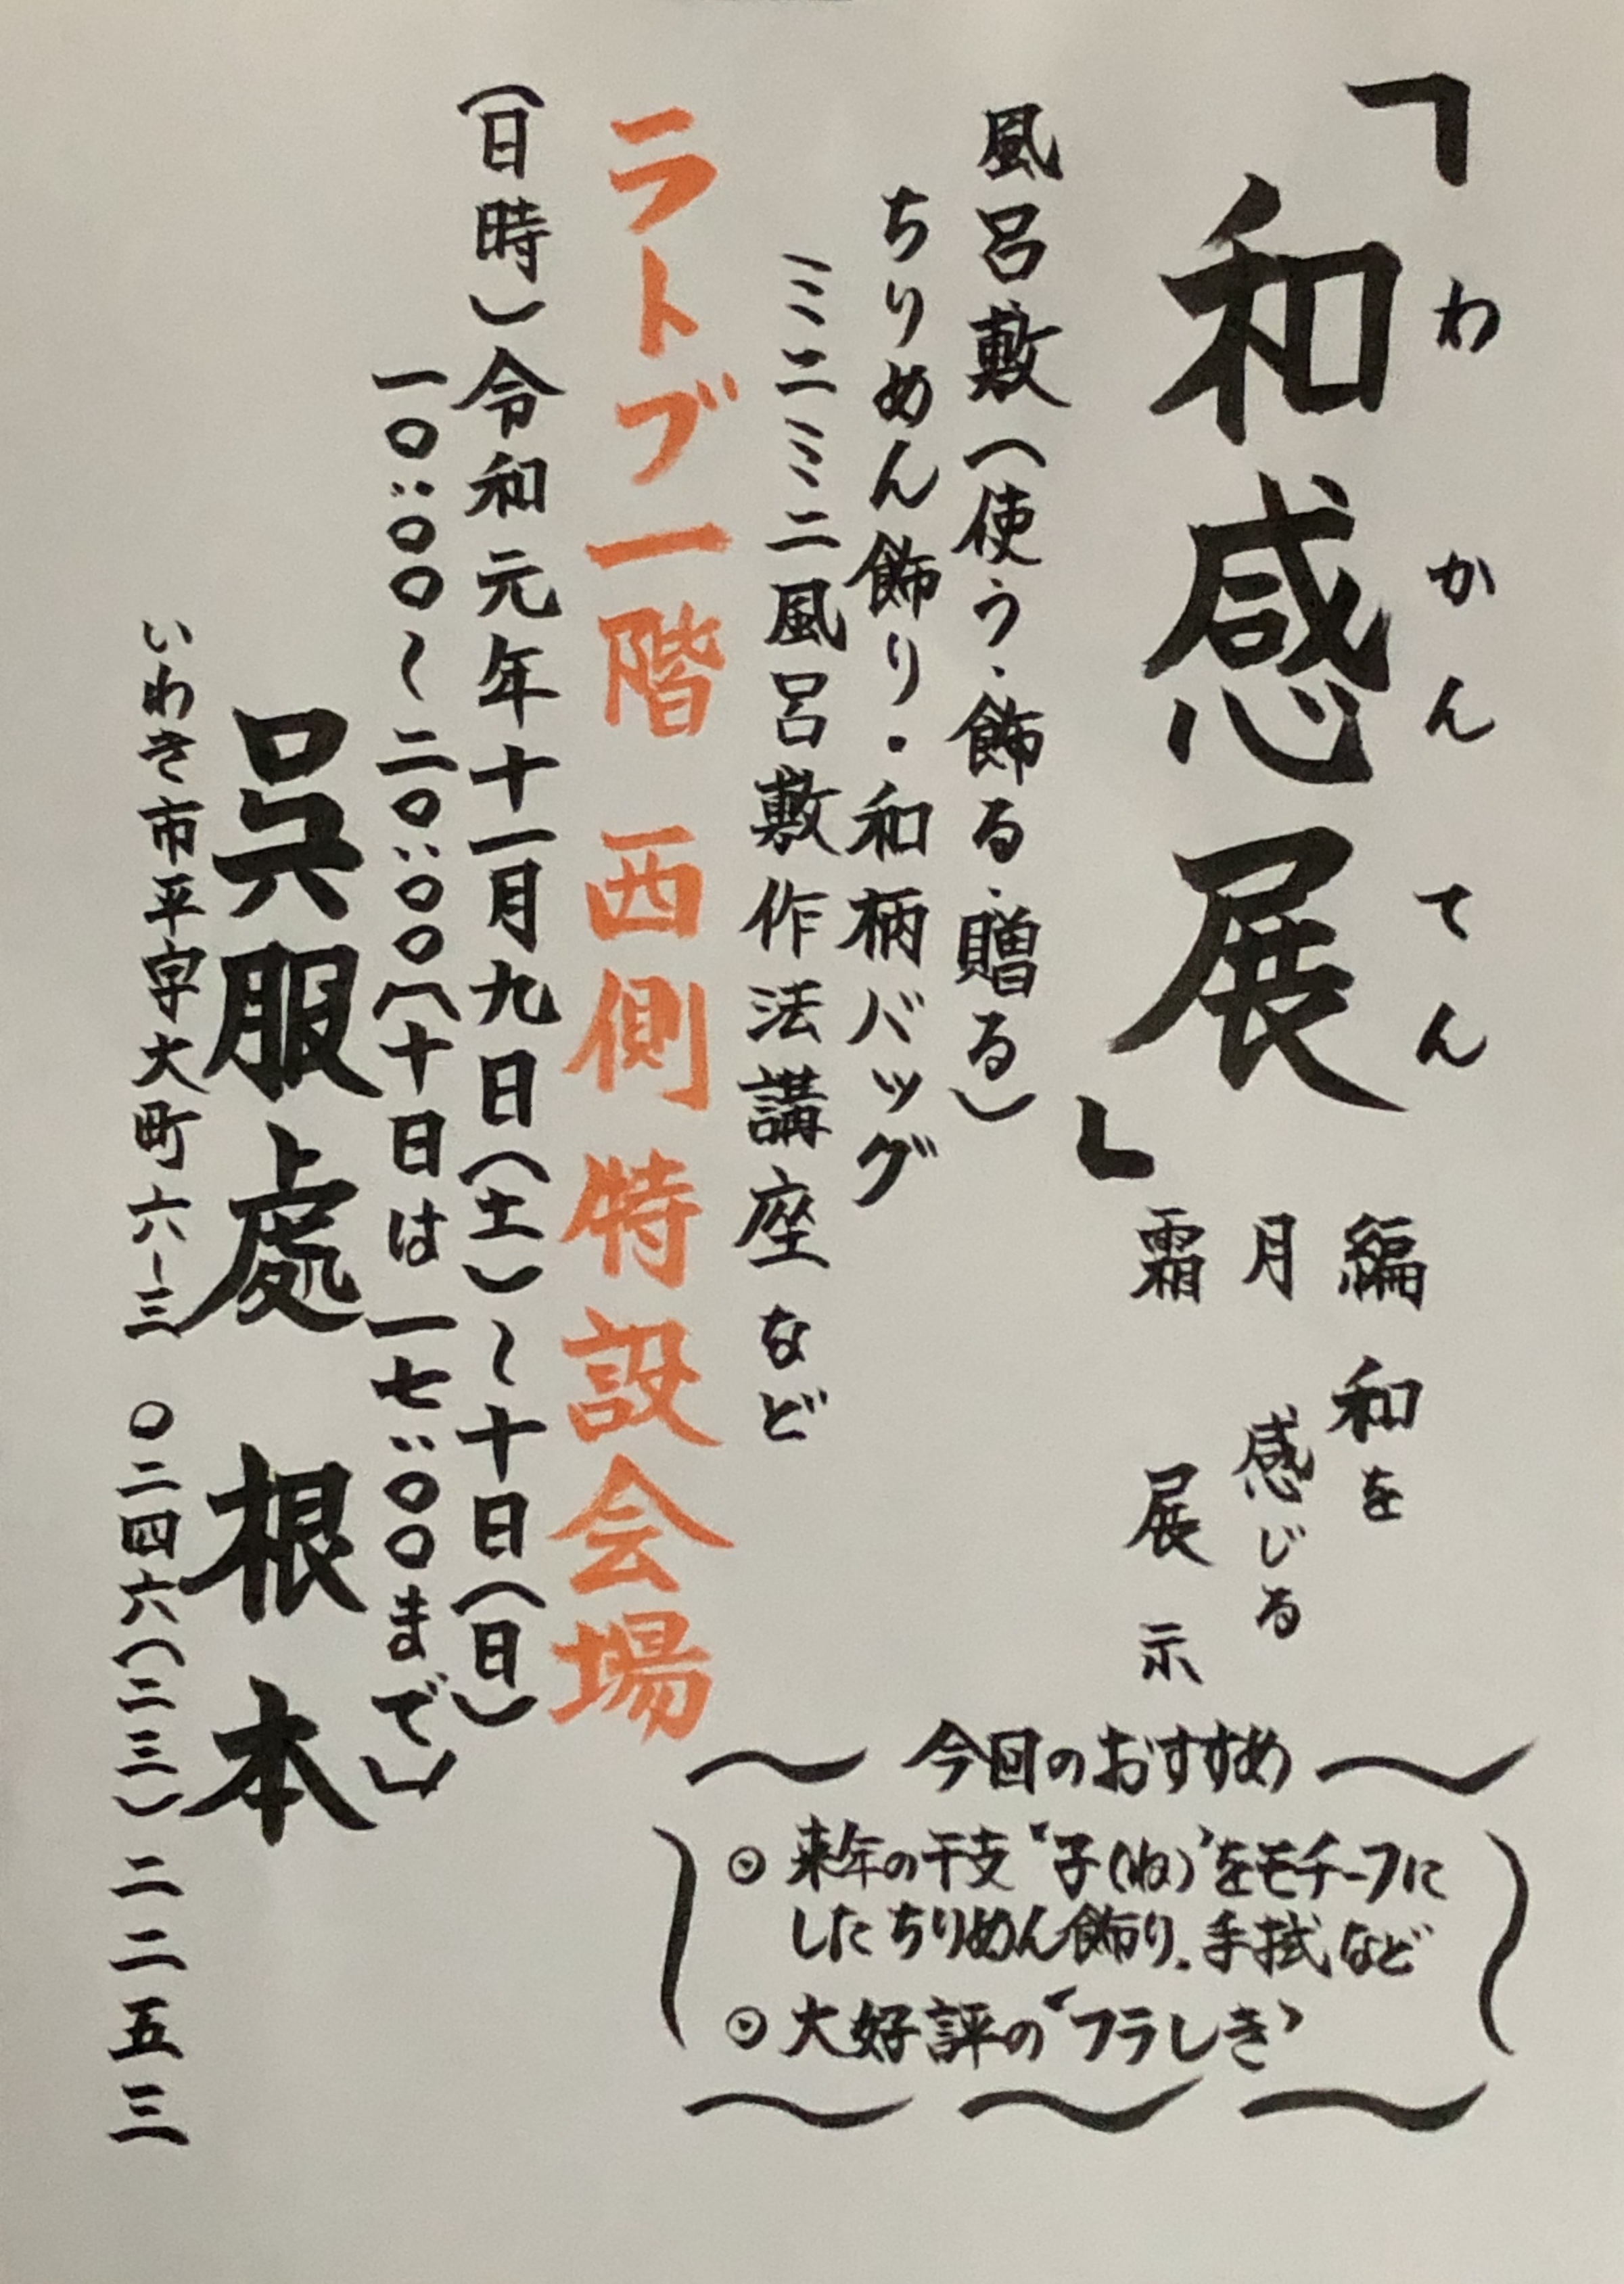 「和感展」
わかんてん
霜月編
和を
感じる
展示
風呂敷(使う・飾る・贈る)
ちりめん飾り・和柄バッグ
ミニミニ風呂敷作法講座など
ラトブ一階 西側 特設会場
(日時)令和元年十一月九日(土)～十日(日)
一〇:〇〇～二〇:〇〇(十日は一七:〇〇まで)
呉服處 根本
いわき市平字大町六-三 〇二四六(二三)二二五三
～今回のおすすめ～
◎来年の干支“子(ね)”をモチーフに
したちりめん飾り、手拭など
◎大好評の“フラしき”